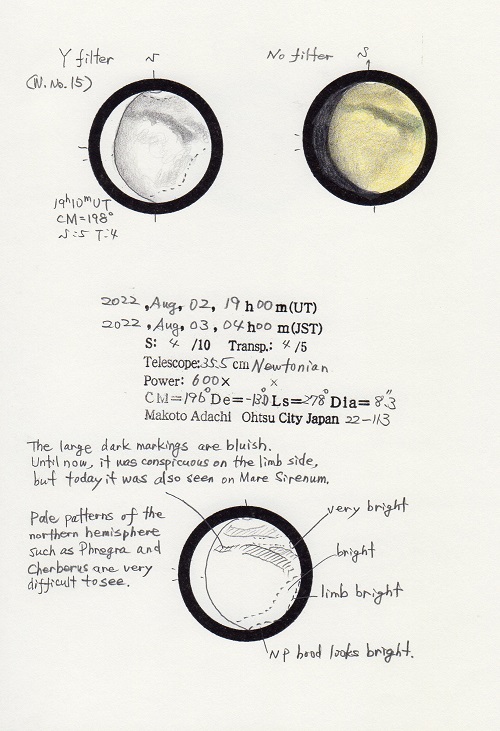 Y filter
(W. No. 15)
No filter
19h10mUT
CM=198°
S:5 T:4
2022, Aug, 02, 19 h 00 m (UT)
2022, Aug, 03, 04 h 00 m (JST)
S: 4 /10 Transp.: 4 /5
Telescope: 35.5 cm Newtonian
Power: 600× ×
CM=196° De=-13.0° Ls=278° Dia= 8.″3
Makoto Adachi Ohtsu City Japan 22-113
The large dark markings are bluish.
Until now, it was conspicuous on the limb side,
but today it was also seen on Mare Sirenum.
Pale patterns of the
northern hemisphere
such as Phregra and
Cherberus are very
difficult to see.
very bright
bright
limb bright
NP hood looks bright.